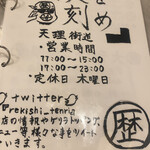 を め
刻
天理街道
・営業時間
11:00～15:00
17:00～23:00
・定休日 木曜日
twitter
@rekishi_tenri
店の情報やゲリラトッピング
ニュー等様々な事をツイート
いきます。
歴